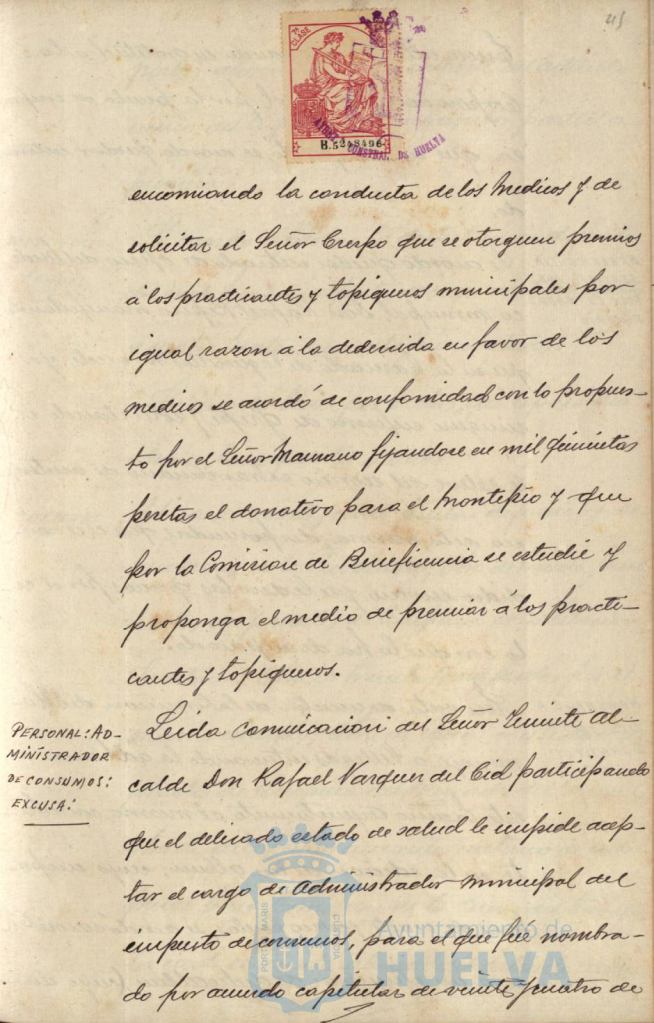 215
7ª CLASE
B.5248496
AYUNTº CONSTNAL DE HUELVA
encomiando la conducta de los Medicos y de
solicitar el Señor Crespo que se otorguen premios
á los practicantes y topiqueros municipales por
igual razon á la deducida en favor de los
medicos se acordó de conformidad con lo propues-
to por el Señor Mascaros fijandose en mil quinientas
pesetas el donativo para el Montepio y que
por la Comision de Beneficencia se estudie y
proponga el medio de premiar á los practi-
cantes y topiqueros.
PERSONAL: AD-
MINISTRADOR
DE CONSUMOS:
EXCUSA:
Leida comunicacion del Señor Teniente Al-
calde Don Rafael Vazquez del Cid participando
que el delicado estado de salud le impide acep-
tar el cargo de Administrador municipal del
impuesto de consumos, para el que fué nombra-
do por acuerdo capitular de veinte y cuatro de
PORTUS MARIS
Ayuntamiento de
HUELVA